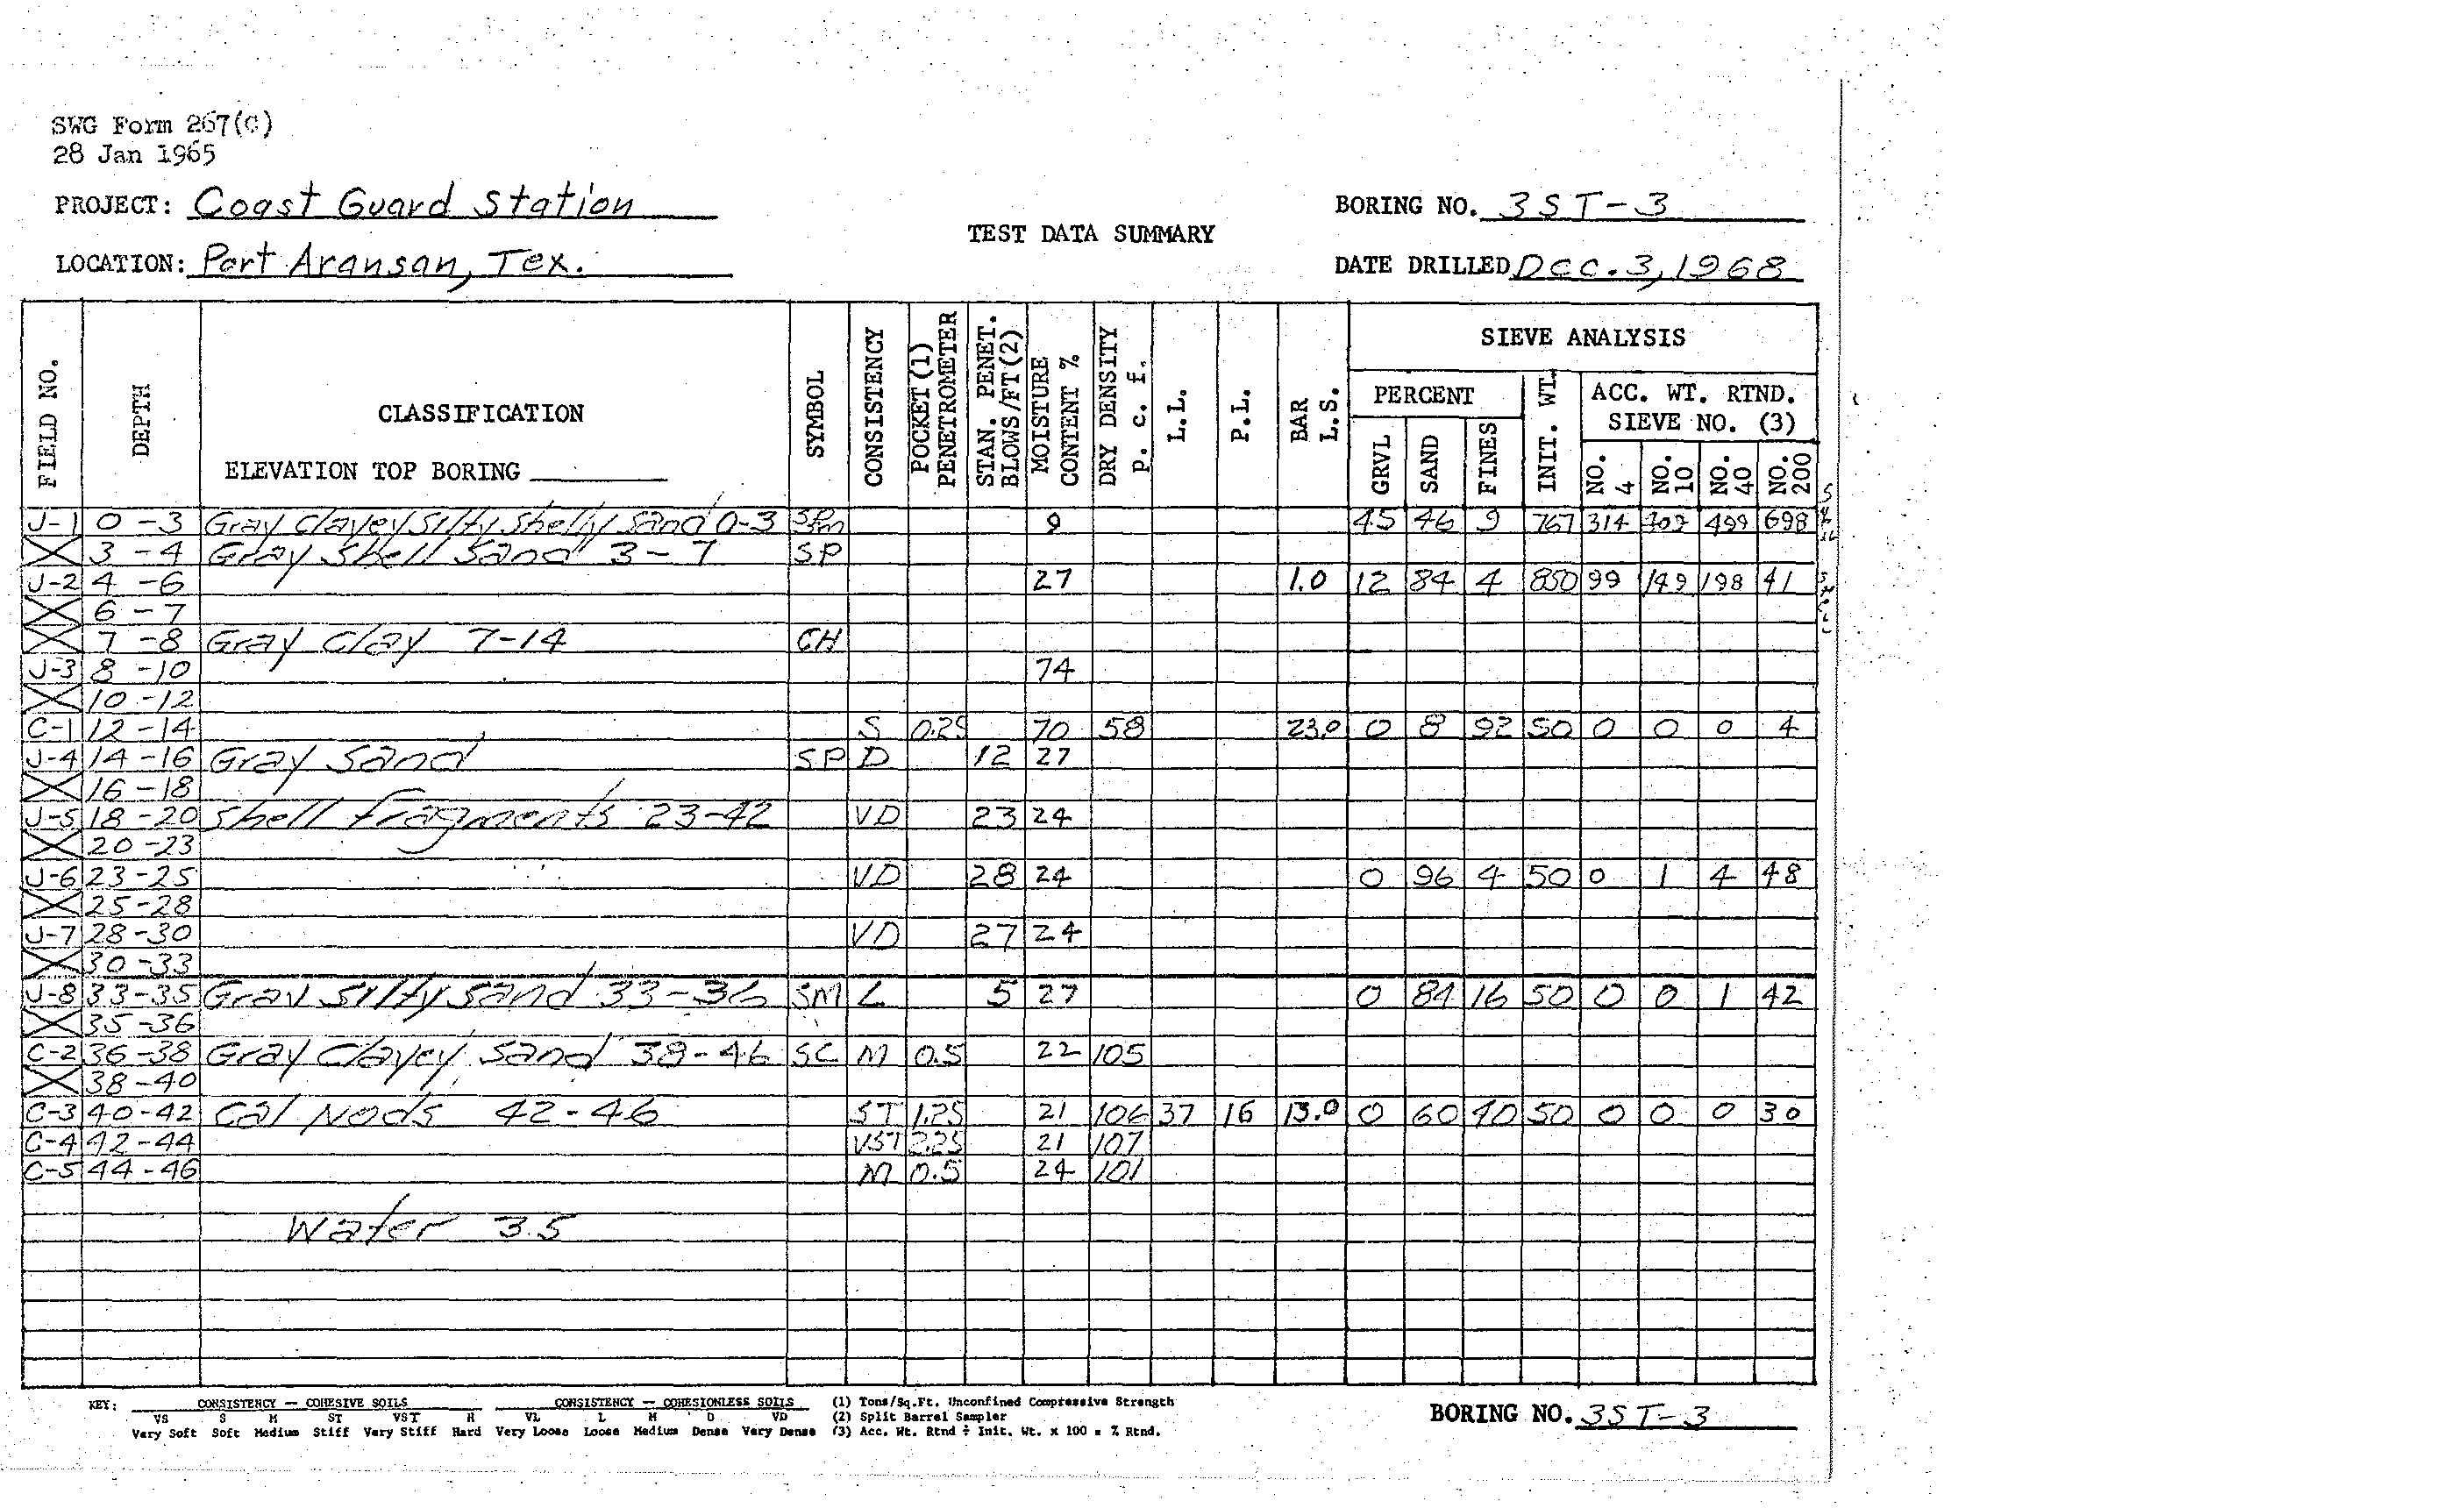 SWG Form 267(C)
28 Jan 1965
PROJECT: Coast Guard Station
BORING NO. 3ST-3
TEST DATA SUMMARY
LOCATION: Port Aransan, Tex.
DATE DRILLED Dec. 3, 1968
FIELD NO. DEPTH CLASSIFICATION ELEVATION TOP BORING SYMBOL CONSISTENCY POCKET (1) PENETROMETER STAN. PENET. BLOWS/FT (2) MOISTURE CONTENT % DRY DENSITY p. c. f. L.L. P.L. BAR L.S.
SIEVE ANALYSIS
PERCENT INIT. WT. ACC. WT. RTND. SIEVE NO. (3)
GRVL SAND FINES NO. 4 NO. 10 NO. 40 NO. 200
J-1 0-3 Gray Clayey Silty Shelly Sand 0-3 9 45 46 9 767 314 499 698
3-4 Gray Shell Sand 3-7 SP
J-2 4-6 27 1.0 12 84 4 850 99 149 198 41
6-7
7-8 Gray Clay 7-14 CH
J-3 8-10 74
10-12
C-1 12-14 S 0.25 70 58 23.0 0 8 92 50 0 0 0 4
J-4 14-16 Gray Sand SP D 12 27
16-18
J-5 18-20 Shell fragments 23-42 VD 23 24
20-23
J-6 23-25 VD 28 24 0 96 4 50 0 1 4 48
25-28
J-7 28-30 VD 27 24
30-33
J-8 33-35 Gray Silty Sand 33-36 SM L 5 27 0 84 16 50 0 0 1 42
35-36
C-2 36-38 Gray Clayey Sand 38-46 SC M 0.5 22 105
38-40
C-3 40-42 Cal Nods 42-46 ST 1.25 21 106 37 16 13.0 0 60 40 50 0 0 0 30
C-4 42-44 VST 2.25 21 107
C-5 44-46 M 0.5 24 101
Water 3.5
KEY: CONSISTENCY — COHESIVE SOILS CONSISTENCY — COHESIONLESS SOILS (1) Tons/Sq.Ft. Unconfined Compressive Strength
VS S M ST VST H VL L M D VD (2) Split Barrel Sampler
Very Soft Soft Medium Stiff Very Stiff Hard Very Loose Loose Medium Dense Very Dense (3) Acc. Wt. Rtnd ÷ Init. Wt. x 100 = % Rtnd.
BORING NO. 3ST-3